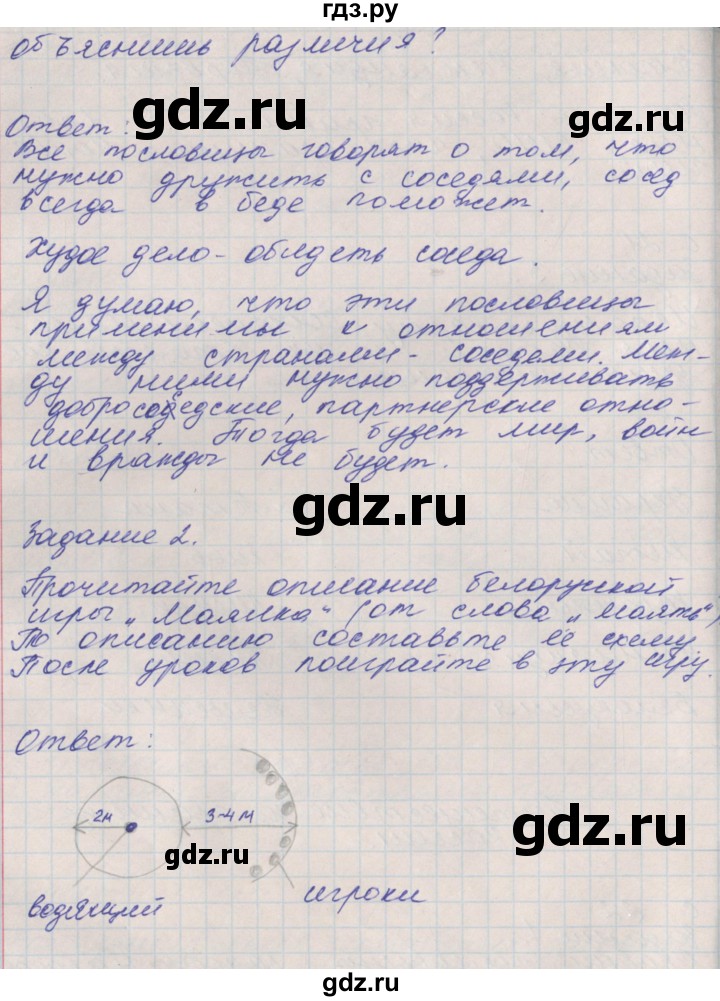 гдз.ру
объяснишь различия?
gdz.ru
Ответ:
Все пословицы говорят о том, что
нужно дружить с соседями, сосед
всегда в беде поможет.
Худое дело - обидеть соседа.
Я думаю, что эти пословицы
применимы к отношениям
между странами - соседями. Меж-
ду ними нужно поддерживать
добрососедские, партнерские отно-
шения. Тогда будет мир, войн
и вражды не будет.
gdz.ru
Задание 2.
Прочитайте описание белоруской
игры "Маялка" (от слова "маять")
По описанию составьте ее схему.
После уроков поиграйте в эту игру.
Ответ:
2м 3-4м
gdz.ru
gdz.ru
водящий игроки
gdz.ru